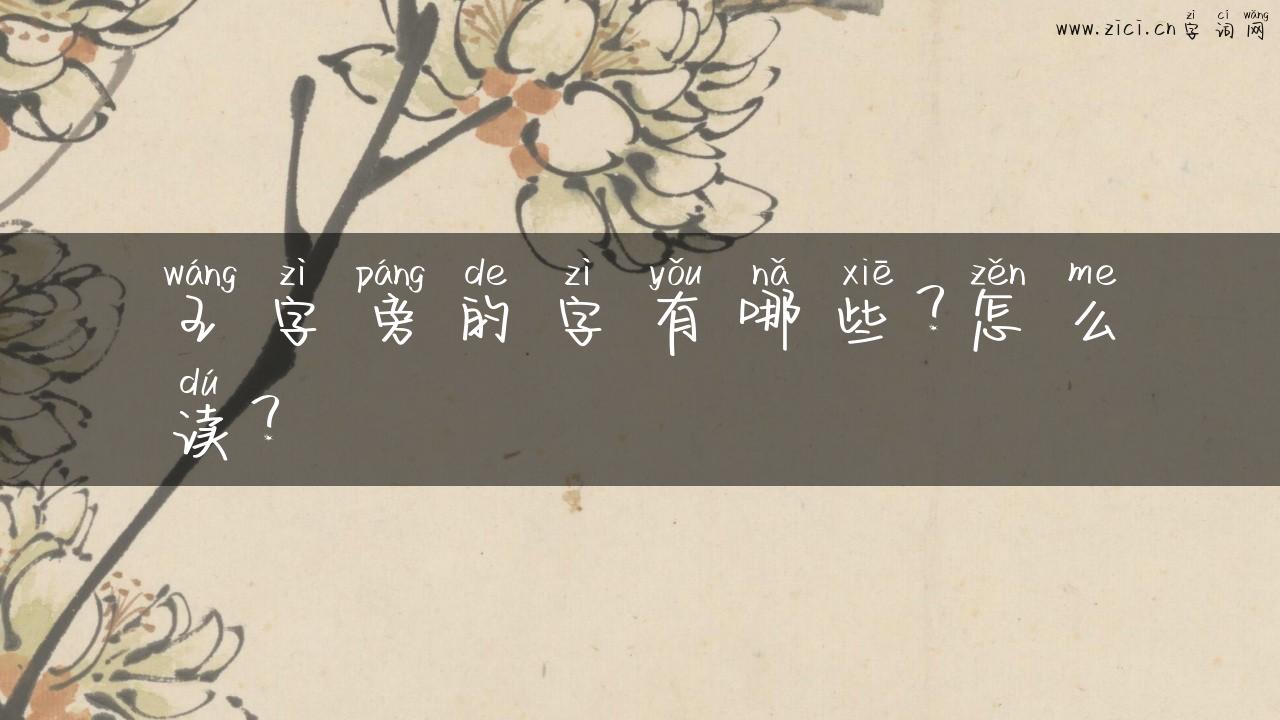 zì cí wǎng
www.zici.cn 字词网
wáng zì páng de zì yǒu nǎ xiē zěn me
王字旁的字有哪些？怎么
dú
读？